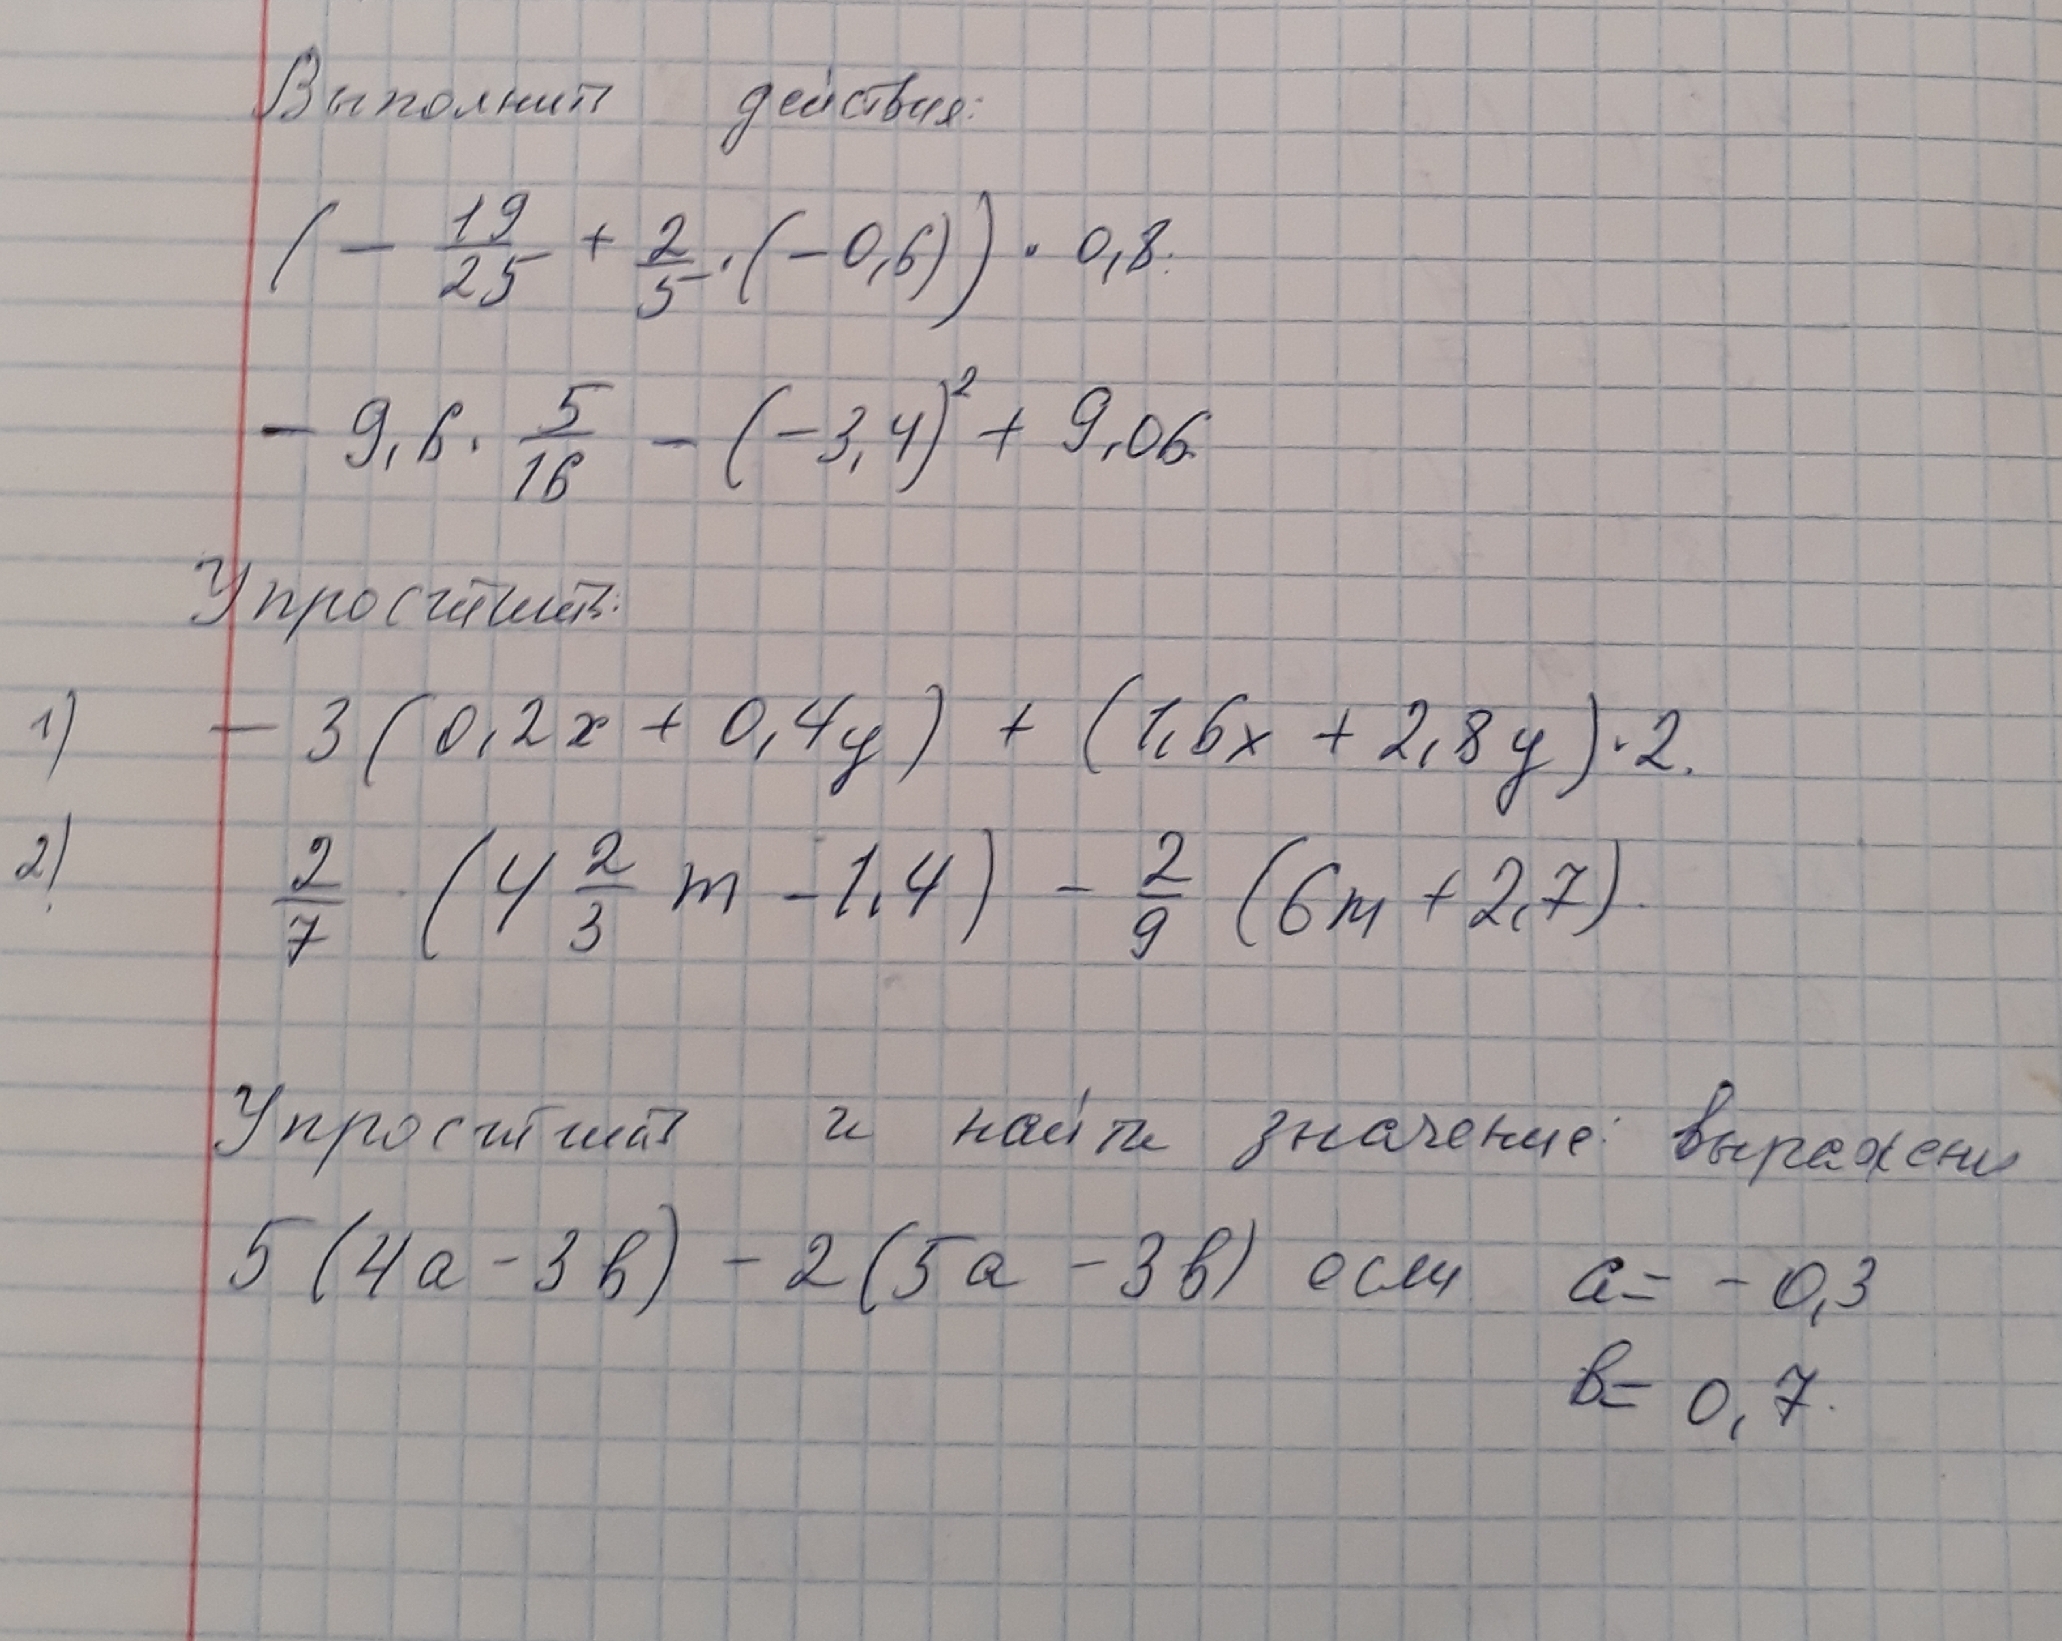 Выполнить действия:
(- 19/25 + 2/5 · (-0,6)) · 0,8.
- 9,6 · 5/16 - (-3,4)² + 9,06
Упростить:
1) - 3(0,2x + 0,4y) + (1,6x + 2,8y) · 2.
2) 2/7 (4 2/3 m - 1,4) - 2/9 (6m + 2,7).
Упростить и найти значение выражени
5(4a - 3b) - 2(5a - 3b) если a = - 0,3
b = 0,7.